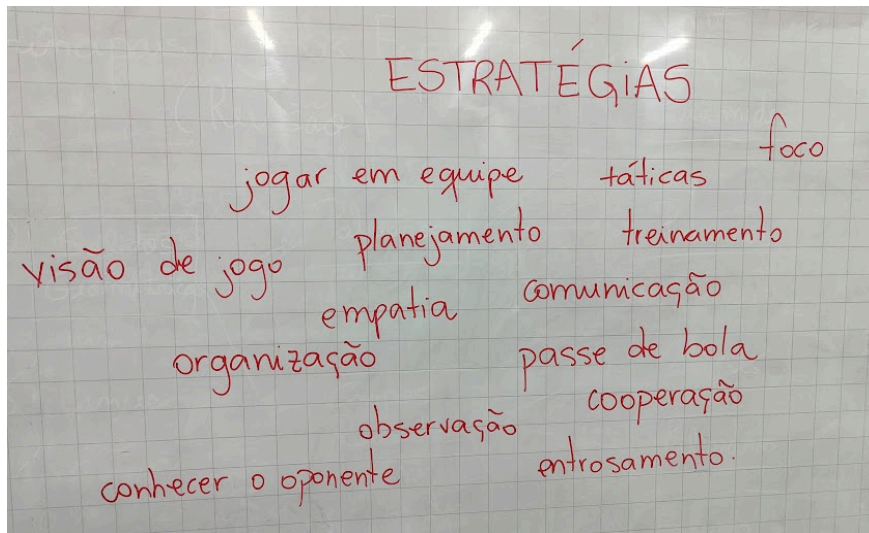 ESTRATÉGiAS
foco
jogar em equipe táticas
visão de jogo planejamento treinamento
empatia comunicação
organização passe de bola
observação cooperação
conhecer o oponente entrosamento.